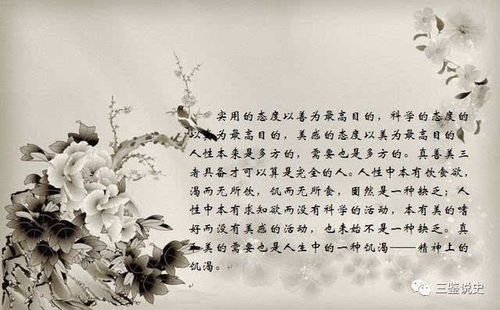 实用的态度以善为最高目的，科学的态度的
以真为最高目的，美感的态度以美为最高目的。
人性本来是多方的，需要也是多方的。真善美三
者具备才可以算是完全的人。人性中本有饮食欲，
渴而无所饮，饥而无所食，固然是一种缺乏；人
性中本有求知欲而没有科学的活动，本有美的嗜
好而没有美感的活动，也未始不是一种缺乏。真
和美的需要也是人生中的一种饥渴——精神上的
饥渴。
三鉴说史